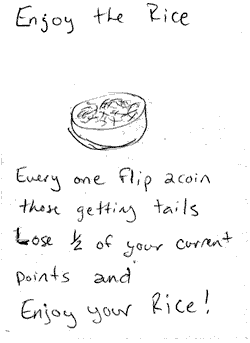 Enjoy the Rice
Every one flip a coin
those getting tails
Lose ½ of your current
points and
Enjoy your Rice!